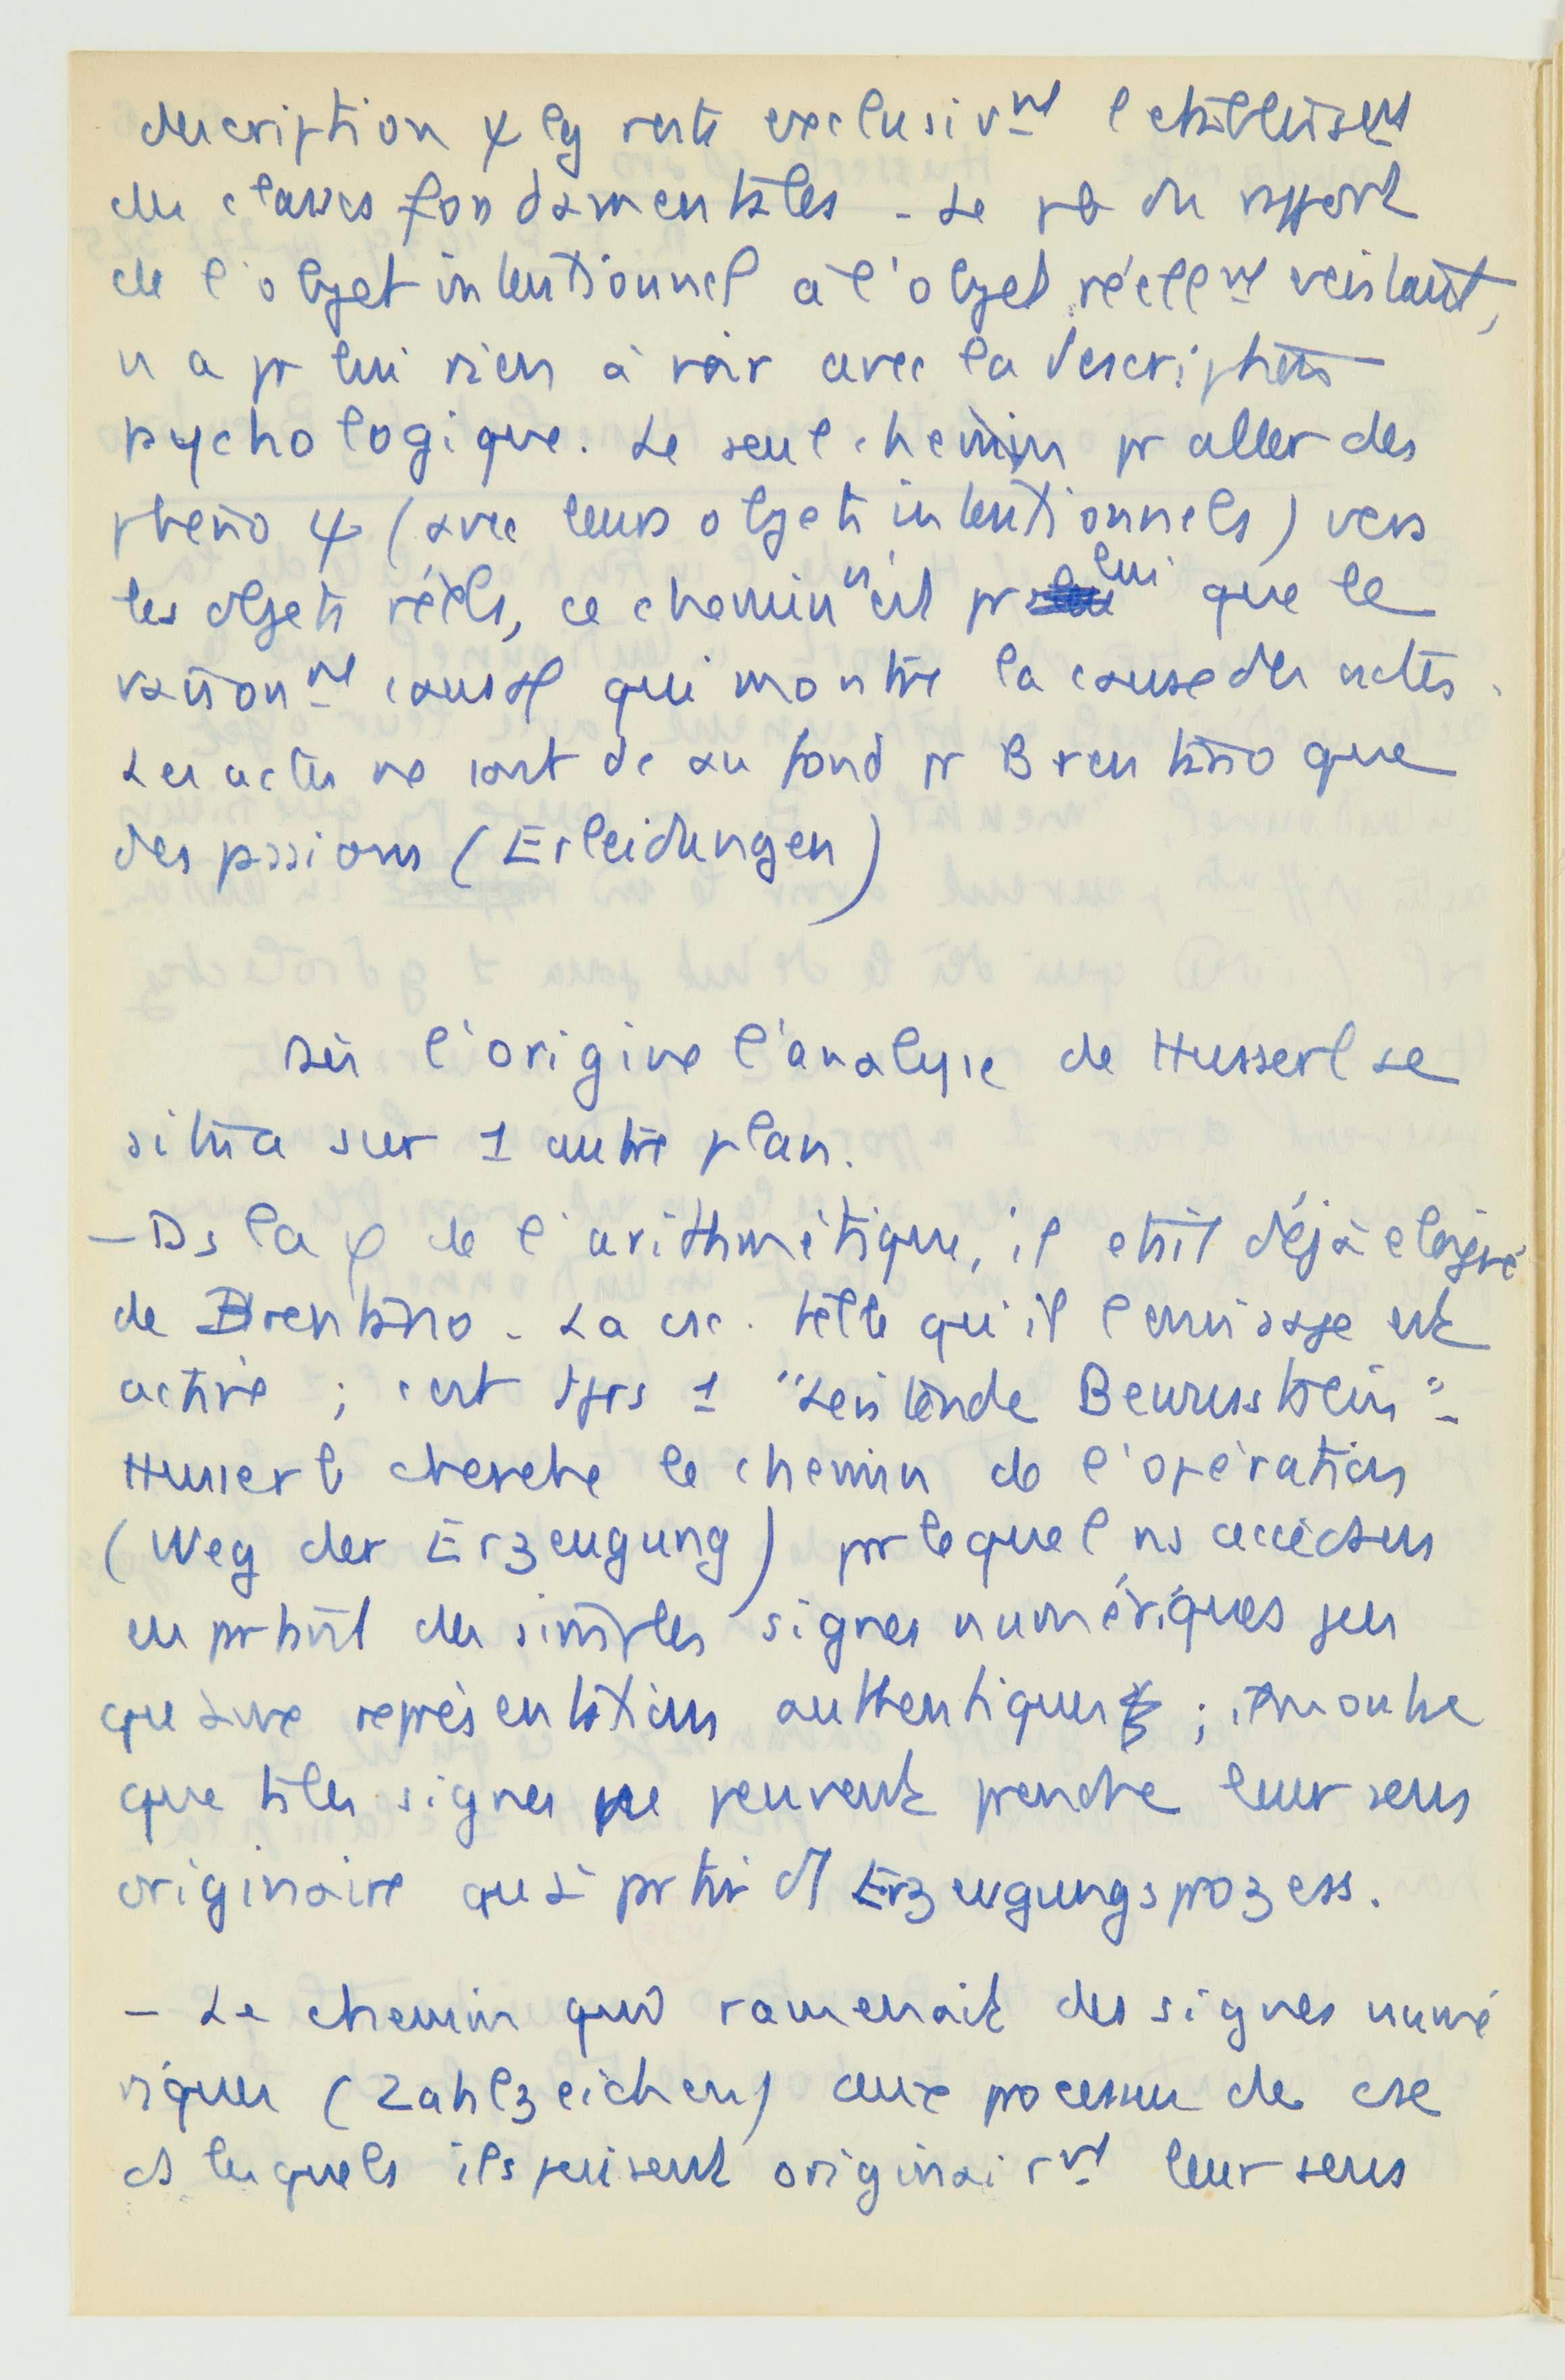 description ψ lg reste exclusivmt l'établissemt
des classes fondamentales - Le pb du rapport
de l'objet intentionnel à l'objet réellmt existant,
n'a pr lui rien à voir avec la description
psychologique. Le seul chemin pr aller des
phéno ψ (avec leurs objets intentionnels) vers
les objets réels, ce chemin n'est pr lui que le
raisonmt causal qui montre la cause des actes.
Les actes ne sont de au fond pr Brentano que
des passions (Erleidungen)
Dès l'origine l'analyse de Husserl se
situa sur 1 autre plan.
- Ds la φ de l'arithmétique, il était déjà éloigné
de Brentano - La csc. telle qu'il l'envisage est
active ; c'est tjrs 1 "Leistende Bewusstsein" -
Husserl cherche le chemin de l'opération
(Weg der Erzeugung) par lequel ns accédons
en partant des simples signes numériques jus
qu'à une représentation authentique ; il montre
que tels signes ne peuvent prendre leur sens
originaire qu'à partir d'1 Erzeugungsprozess.
- Le chemin qui ramenait des signes numé
riques (Zahlzeichen) aux processus de csc
ds lesquels ils puisent originairmt leur sens